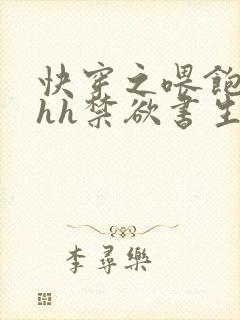 快穿之喂飽
hh禁欲書生
李尋樂